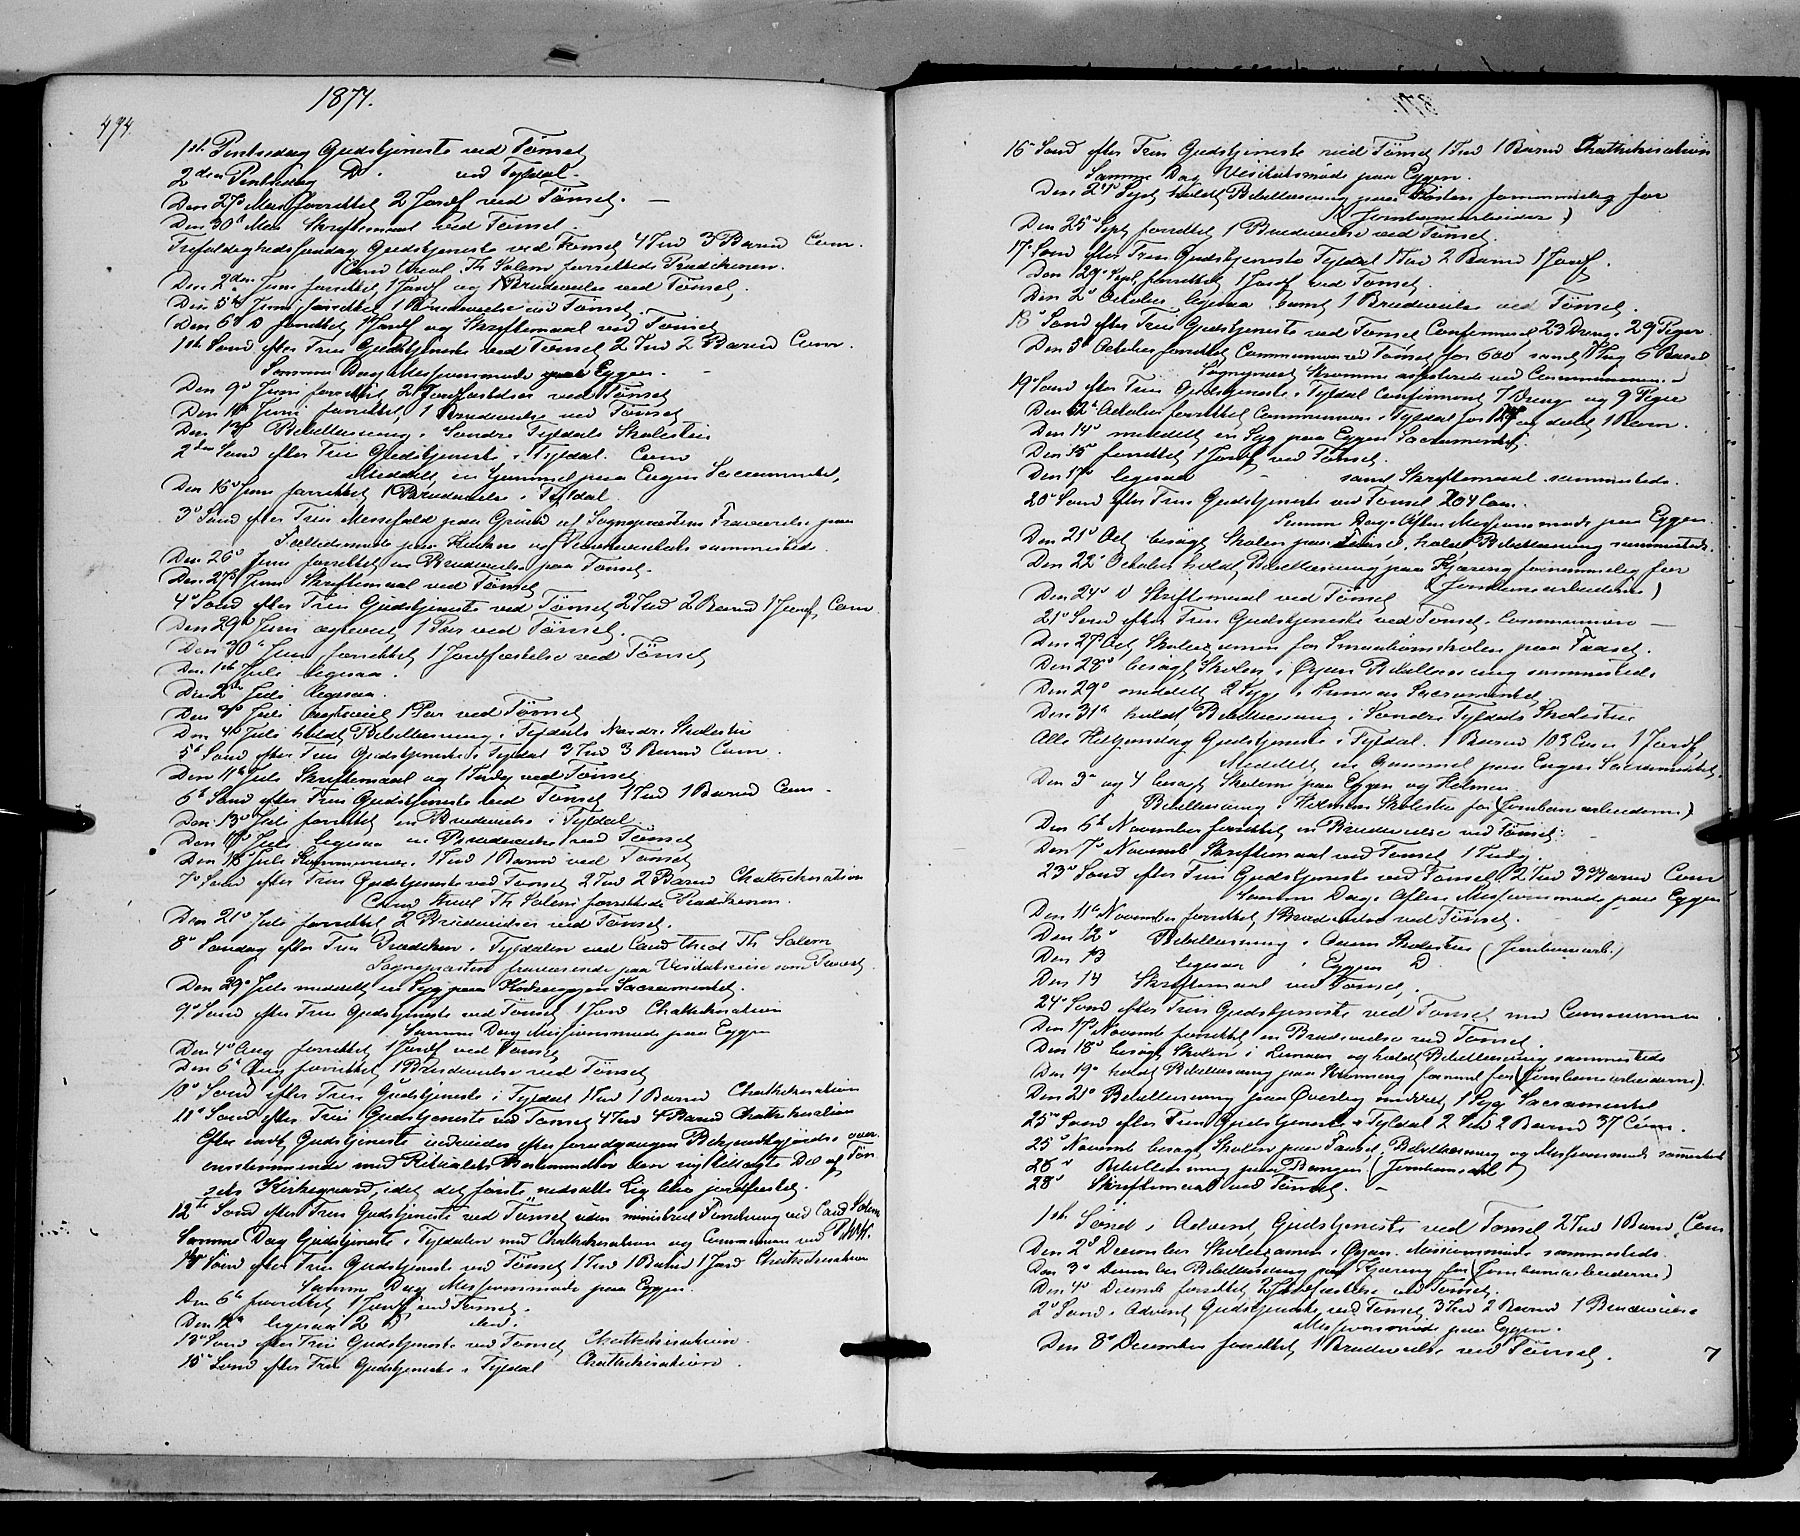 1874.
494.
1ste Pintsedag Gudstjeneste ved Tönset
2den Pintsedag D. ved Tyldal.
Den 27 Mai forrettet 2 Jordf ved Tönset. —
Den 30 Mai Skriftemaal ved Tönset.
Trefoldighedssöndag Gudstjeneste ved Tönset 4 Ind 3 Barned Com.
Cand theol. Th. Solem forrettede Prædikenen.
Den 2den Juni forrettet 1 Jordf og 1 Brudevielse ved Tönset.
Den 5 Juni forrettet 1 Brudevielse ved Tönset.
Den 6 D forrettet 1 Jordf og Skriftemaal ved Tönset
1ste Sönd efter Trin Gudstjeneste ved Tönset 2 Ind 2 Barned Com.
Samme Dag Missionsmöde paa Eggen.
Den 9 Juni forrettet 2 Jordfæstelser ved Tönset
Den Juni forrettet 1 Brudevielse ved Tönset
Den 12 Bibellæsning i Söndre Tyldals Skolestue
2den Sönd efter Trin Gudstjeneste i Tyldal. Com
Meddelt en Gammel paa Eugen Sacramentet,
Den 16 Juni forrettet 1 Brudevielse i Tyldal.
3 Sönd efter Trin Messefald paa Grund af Sognepræstens Fraværelse paa
sammesteds.
Den 26 Juni forrettet en Brudevielse paa Tönset.
Den 27 Juni Skriftemaal ved Tönset
4 Sönd efter Trin Gudstjeneste ved Tönset 2 Ind 2 Barned 1 Jordf Com.
Den 29 Juni ægteviet 1 Par ved Tönset.
Den 30 Juni forrettet 1 Jordfæstelse ved Tönset
Den 1ste Juli ligesaa.
Den 2den Juli ligesaa.
Den 3 Juli ægteviet 1 Par ved Tönset
Den 4 Juli holdt Bibellæsning i Tyldals Nordre Skolestue
5 Sönd efter Trin Gudstjeneste i Tyldal 3 Ind 3 Barned Com.
Den 11 Juli Skriftemaal og 1 Indg ved Tönset
6 Sönd efter Trin Gudstjeneste ved Tönset 1 Ind 1 Barned Com.
Den 13 Juli forrettet en Brudevielse i Tyldal.
Den 17 Juli ligesaa en Brudevielse ved Tönset
Den 18 Juli Kommunion 1 Ind 1 Barned ved Tönset
7 Sönd efter Trin Gudstjeneste ved Tönset 2 Ind 2 Barned Chathekisation
Cand theol Th Solem forrettede Prædikenen.
Den 21 Juli forrettet 2 Brudevielser ved Tönset.
8 Söndag efter Trin Prædiken i Tyldalen ved Cand theol Th. Solem
Sognepræsten fraværende paa Visitatsreise som Provst.
Den 29 Juli meddelt en Syg paa Sacramentet.
9 Sönd efter Trin Gudstjeneste ved Tönset 1 Jord Chathekisation
Samme Dag Missionsmöde paa Eggen
Den 4 Aug forrettet 1 Jordf ved Tönset
Den 6 Aug forrettet 1 Brudevielse ved Tönset
10 Sönd efter Trin Gudstjeneste i Tyldal 1 Ind 1 Barned Chathekisation
11 Sönd efter Trin Gudstjeneste ved Tönset 4 Ind 4 Barned Chathekisation
Efter endt Gudstjeneste indviedes efter foregaaende Bekjendtgjörelse over-
ensstemmende med Ritualets Bestemmelse den nytillagte Del af Tön-
sets Kirkegaard, idet det förste nedsatte Lig blev jordfæstet.
12te Sönd efter Trin Gudstjeneste ved Tönset uden ministriel Forretning ved Cand Solem
Samme Dag Gudstjeneste i Tyldalen med Chathekisation og Communion ved
14 Sönd efter Trin Gudstjeneste ved Tönset 1 Ind 1 Barned 1 Jord Chathekisation
Samme Dag Missionsmöde paa Eggen.
Den 6 forrettet 1 Jordf ved Tönset.
Den 12 ligesaa 2 D
13 Sönd efter Trin Gudstjeneste ved Tönset Chathekisation.
15 Sönd efter Trin Gudstjeneste i Tyldal Chathekisation.
16 Sönd efter Trin Gudstjeneste ved Tönset 1 Ind 1 Barned Chathekisation
Samme Dag Visitatsmöde paa Eggen.
Den 24 Sept holdt Bibellæsning paa fornemmelig for
(Jernbanearbeider)
Den 25 Sept forrettet 1 Brudevielse ved Tönset.
17 Sönd efter Trin Gudstjeneste Tyldal 1 Ind 2 Barned 1 Jordf.
Den 29 Sept forrettet 1 Jordf ved Tönset.
Den 2 October ligesaa samt 1 Brudevielse ved Tönset.
18 Sönd efter Trin Gudstjeneste ved Tönset Confirmeret 23 Drenge 29 Piger
Den 5 October forrettet Communion ved Tönset for 600 samt 1 Indg 6 Barned
Sognepræst assisterede ved Communionen.
19 Sönd efter Trin Gudstjeneste i Tyldal Confirmeret 7 Drenge og 9 Piger
Den 12 October forrettet Communion i Tyldal for og döbt 1 Barn.
Den 14 meddelt en Syg paa Eggen Sacramentet.
Den 15 forrettet 1 Jordf ved Tönset.
Den 17 ligesaa - samt Skriftemaal sammesteds.
20 Sönd efter Trin Gudstjeneste ved Tönset 204 Com.
Samme Dags Aften Missionsmöde paa Eggen.
Den 21 Oct besögt Skolen paa holdt Bibellæsning sammesteds.
Den 22 October holdt Bibellæsning paa Kjæreng fornemmelig for
(Jernbanearbeiderne)
Den 24 D Skriftemaal ved Tönset
21 Sönd efter Trin Gudstjeneste ved Tönset. Communion —
Den 27 Oct Skoleexamen for Smaabörnsskolen paa Faaset.
Den 28 besögt Skolen i Öyan Bibellæsning sammesteds
Den 29 meddelt 2 Syge i Sacramentet.
Den 31 holdt Bibellæsning i Söndre Tyldals Skolestue
Alle Helgensdag Gudstjeneste i Tyldal. 1 Barned 103 Com 1 Jordf
Meddelt en Gammel paa Eugen Sacramentet.
Den 3 og 4 besögt Skolen paa Eggen og Holmen
Bibellæsning i Holmens Skolestue for (Jernbanearbeiderne)
Den 6 November forrettet en Brudevielse ved Tönset.
Den 7 Novemb Skriftemaal ved Tönset 1 Indg.
23 Sönd efter Trin Gudstjeneste ved Tönset 2 Ind 3 Barned Com
Samme Dags Aften Missionsmöde paa Eggen
Den 11 November forrettet 1 Brudevielse ved Tönset.
Den 12 Bibellæsning i Skolestue (Jernbanearb.)
Den 13 ligesaa i Eggen D.
Den 14 Skriftemaal ved Tönset.
24 Sönd efter Trin Gudstjeneste ved Tönset med Communion
Den 17 Novemb forrettet en Brudevielse ved Tönset.
Den 18 besögt Skolen i og holdt Bibellæsning sammesteds
Den 19 holdt Bibellæsning paa for (Jernbanearbeiderne).
Den 21 Bibellæsning paa Överby meddelt 1 Syg Sacramentet
25 Sönd efter Trin Gudstjeneste i Tyldal 2 Ind 2 Barned 37 Com.
25 Novemb besögt Skolen paa Faaset, Bibellæsning og Missionsmöde sammesteds
26 Bibellæsning paa Bangen (Jernbanearb)
28 Skriftemaal ved Tönset. -
1ste Sönd i Advent Gudstjeneste ved Tönset 2 Ind 1 Barned, Com
Den 2 December Skoleexamen i Öyan. Missionsmöde sammesteds.
Den 3 December Bibellæsning paa Kjæreng for (Jernbanearbeiderne)
Den 4 Decemb forrettet 2 Jordfæstelse ved Tönset.
2 Sönd i Advent Gudstjeneste ved Tönset 3 Ind 2 Barned 1 Brudevielse
Missionsmöde paa Eggen.
Den 8 December forrettet 1 Brudevielse ved Tönset.
7